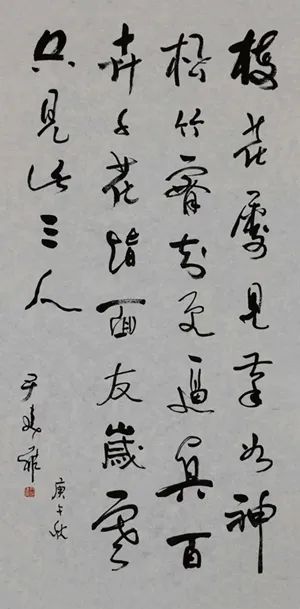 梅花屢見筆如神
松竹寧知更逼真百
卉千花皆面友歲寒
只見此三人
庚午秋
尹